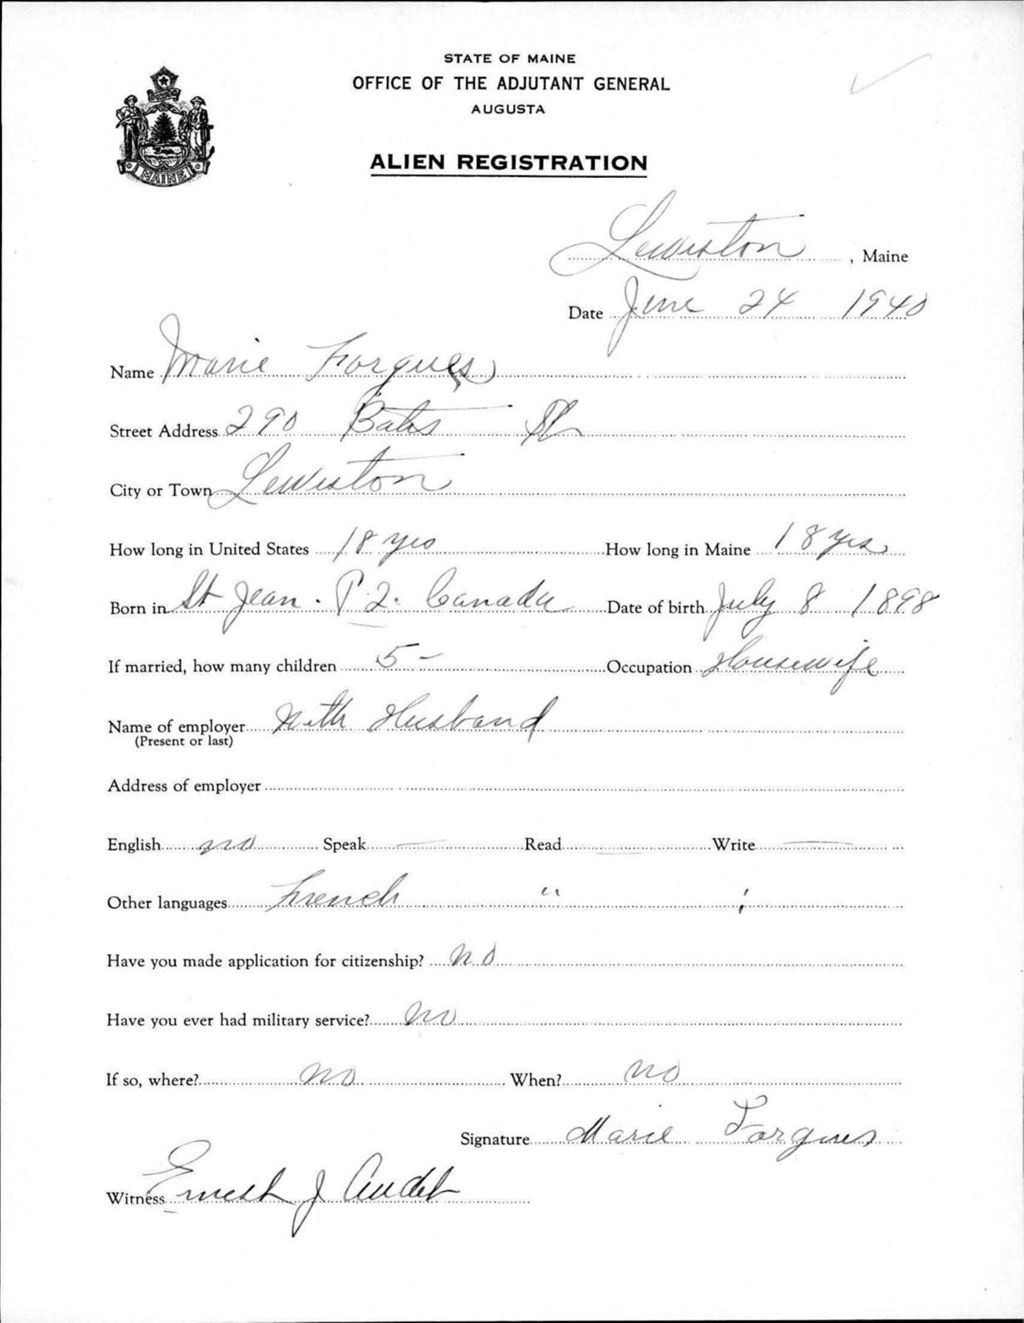 STATE OF MAINE
OFFICE OF THE ADJUTANT GENERAL
AUGUSTA
MAINE
ALIEN REGISTRATION
Lewiston, Maine
Date June 24 1940
Name Marie Forgues
Street Address 290 Bates St
City or Town Lewiston
How long in United States 18 yrs How long in Maine 18 yrs
Born in St Jean. P.Q. Canada Date of birth July 8 1898
If married, how many children 5 - Occupation Housewife
Name of employer With Husband
(Present or last)
Address of employer
English no Speak — Read — Write —
Other languages French " "
Have you made application for citizenship? No
Have you ever had military service? No
If so, where? No When? No
Signature Marie Forgues
Witness Ernest J Audet